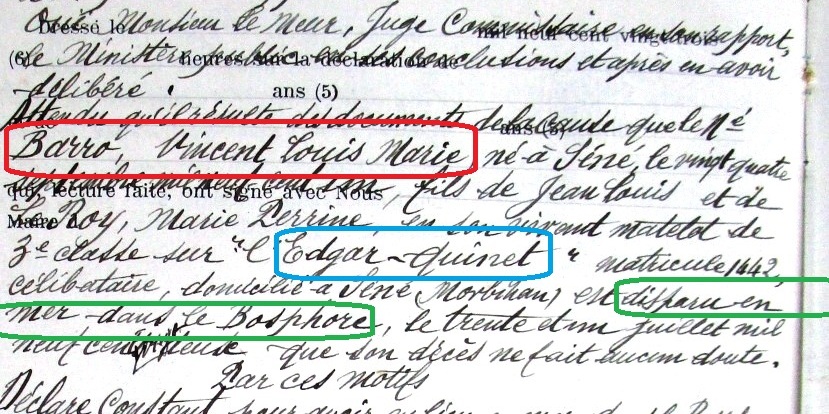 Ouï Monsieur Le Meur, Juge Commissaire en son rapport,
Dressé le mil neuf cent vingt trois
le Ministère public en ses conclusions et après en avoir
(6) heures sur la déclaration de
délibéré.
ans (5)
Attendu qu'il résulte des documents de la cause que le Né
ans (5)
Barro, Vincent Louis Marie, né à Séné, le vingt quatre
mil neuf cent un, fils de Jean Louis et de
qui, lecture faite, ont signé avec Nous
Le Roy, Marie Perrine, en son vivant matelot de
Maire
3e classe sur "l'Edgar-Quinet" matricule 1442,
célibataire, domicilié à Séné (Morbihan) est disparu en
mer dans le Bosphore, le trente et un juillet mil
neuf cent que son décès ne fait aucun doute.
Par ces motifs
Déclare constant